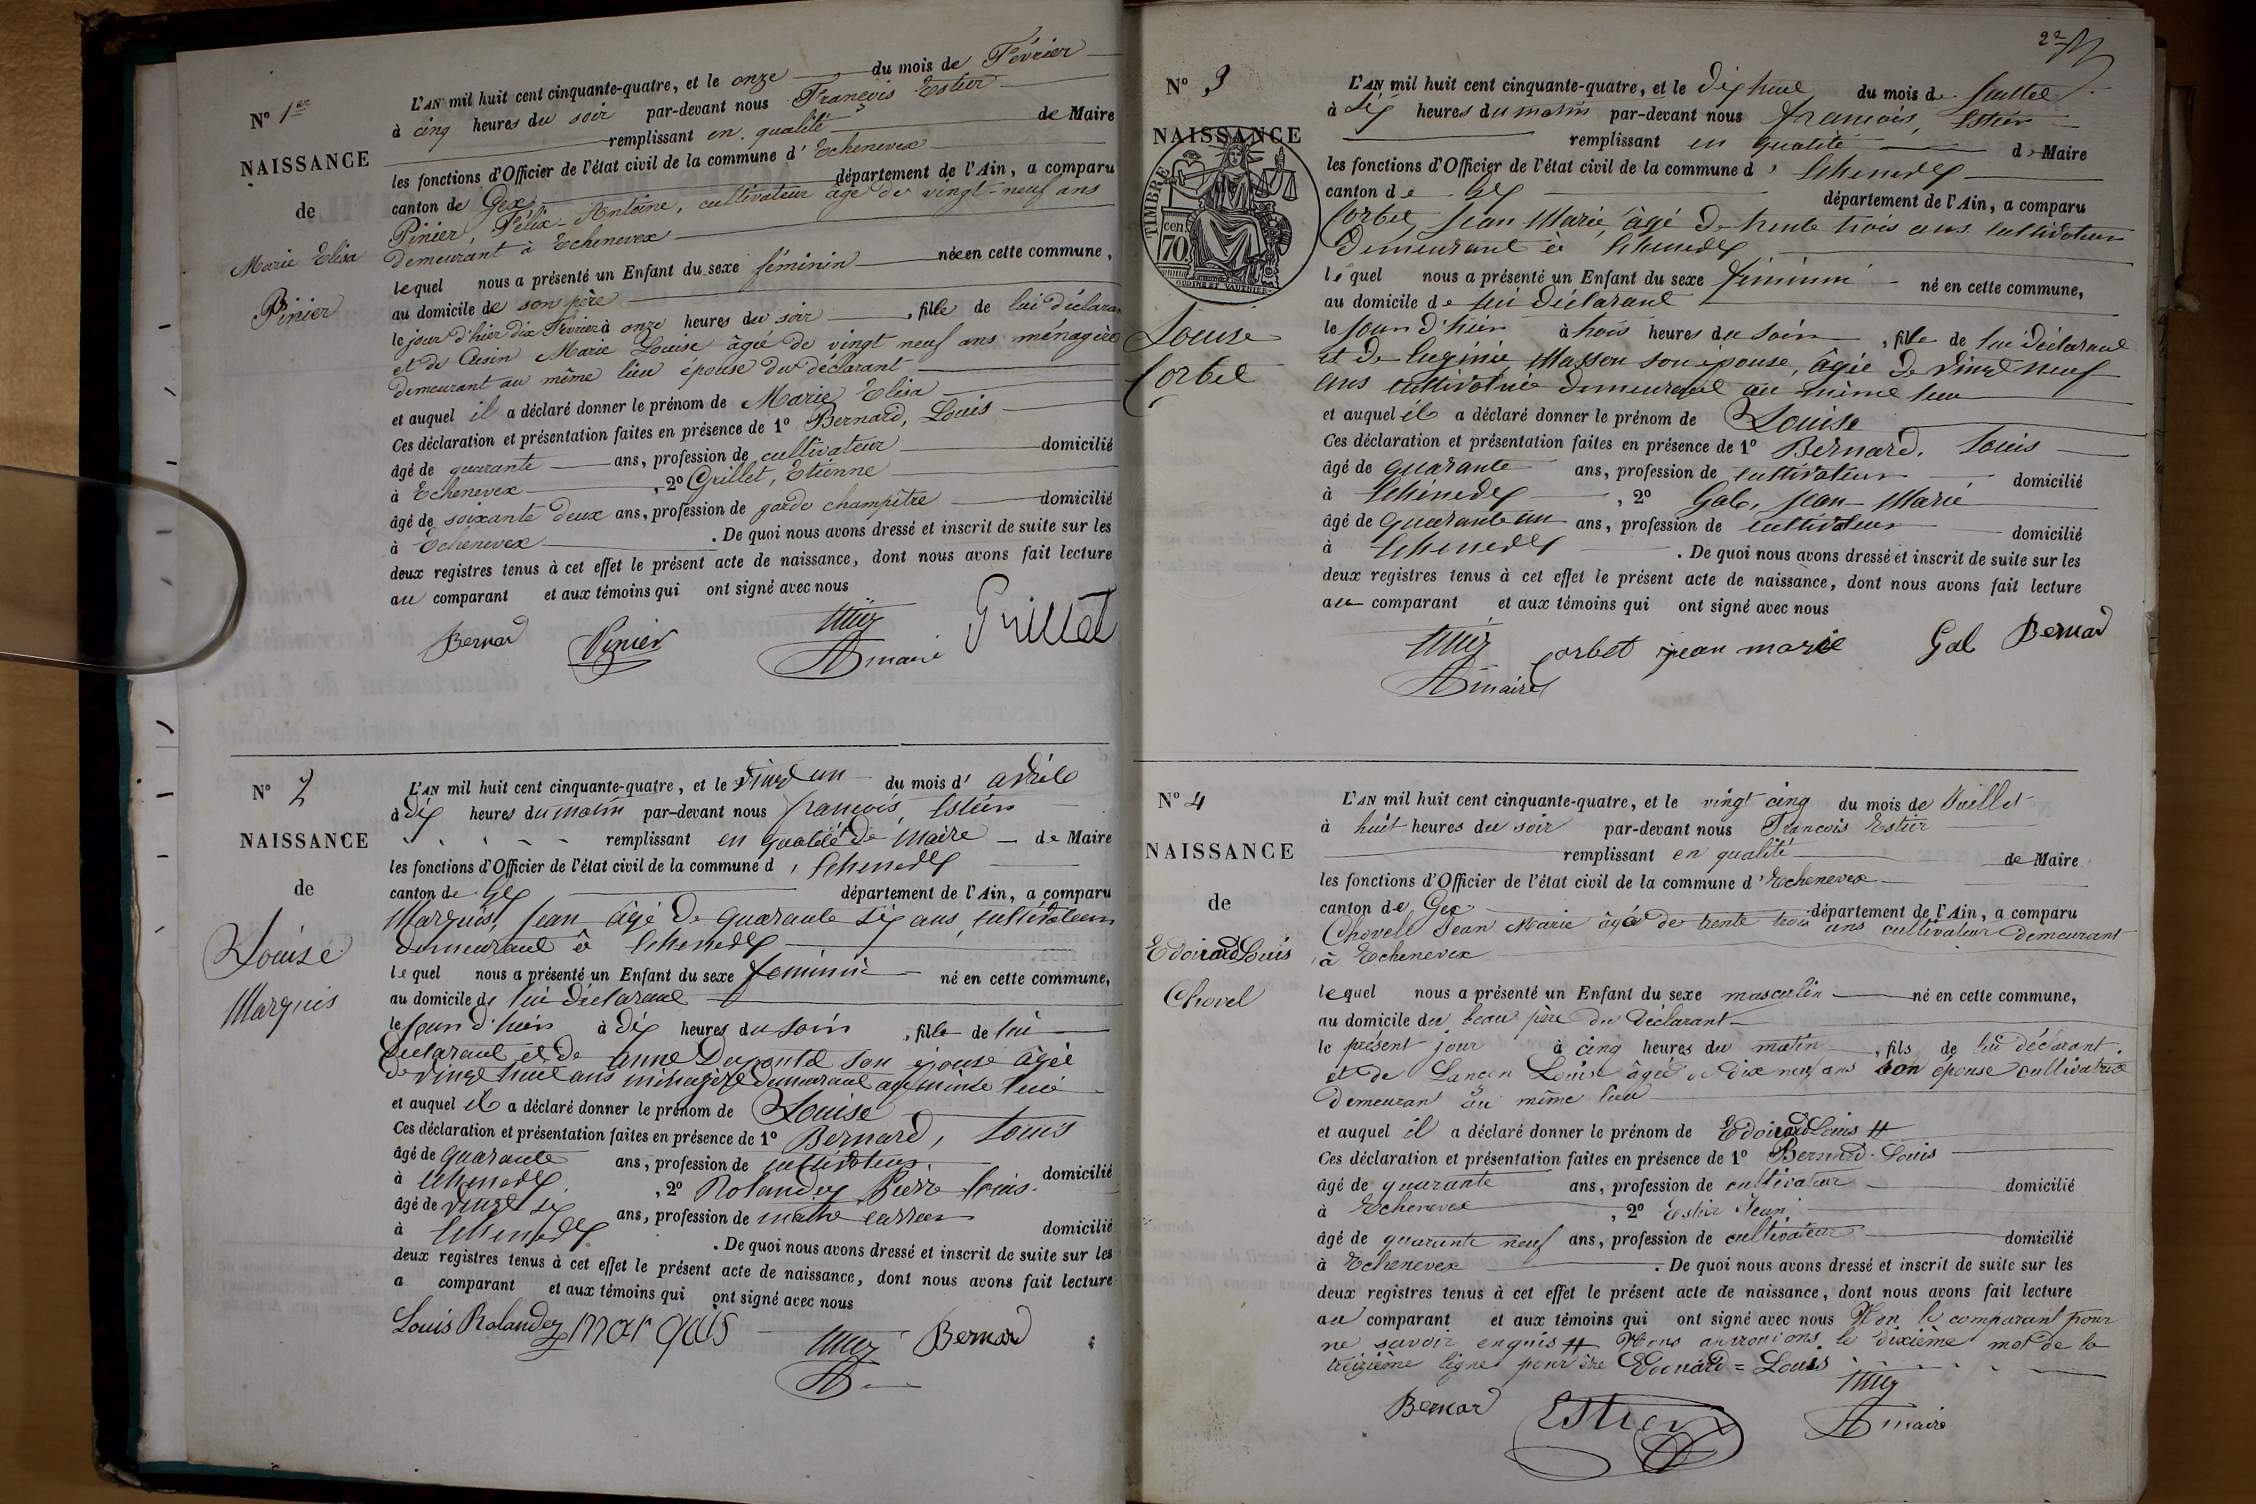 N° 1er
NAISSANCE
de
Marie Elisa
Pinier
L'AN mil huit cent cinquante-quatre, et le onze du mois de Février
à cinq heures du soir par-devant nous François Estier
remplissant en qualité de Maire
les fonctions d'Officier de l'état civil de la commune d' Echenevex
canton de Gex département de l'Ain, a comparu
Pinier, Félix-Antoine, cultivateur âgé de vingt-neuf ans
demeurant à Echenevex
lequel nous a présenté un Enfant du sexe féminin née en cette commune,
au domicile de son père
le jour d'hier dix Février à onze heures du soir, fille de lui déclarant
et de Marie Louise âgée de vingt neuf ans ménagère
demeurant au même lieu épouse du déclarant
et auquel il a déclaré donner le prénom de Marie Elisa
Ces déclaration et présentation faites en présence de 1° Bernard, Louis
âgé de quarante ans, profession de cultivateur domicilié
à Echenevex, 2° Grillet, Etienne
âgé de soixante deux ans, profession de garde champêtre domicilié
à Echenevex. De quoi nous avons dressé et inscrit de suite sur les
deux registres tenus à cet effet le présent acte de naissance, dont nous avons fait lecture
au comparant et aux témoins qui ont signé avec nous
Bernard Pinier Estier maire Grillet
N° 2
NAISSANCE
de
Louise
Marquis
L'AN mil huit cent cinquante-quatre, et le vingt un du mois d' avril
à dix heures du matin par-devant nous françois Estier
remplissant en qualité de Maire de Maire
les fonctions d'Officier de l'état civil de la commune d' Echenevex
canton de Gex département de l'Ain, a comparu
Marquis, Jean âgé de quarante six ans, cultivateur
demeurant à Echenevex
lequel nous a présenté un Enfant du sexe feminin né en cette commune,
au domicile de lui déclarant
le jour d'hier à dix heures du soir, fille de lui
déclarant et de anne son épouse âgée
de vingt huit ans ménagère demeurant au même lieu
et auquel il a déclaré donner le prénom de Louise
Ces déclaration et présentation faites en présence de 1° Bernard, Louis
âgé de quarante ans, profession de cultivateur domicilié
à Echenevex, 2° Rolandez Pierre Louis
âgé de vingt six ans, profession de domicilié
à Echenevex. De quoi nous avons dressé et inscrit de suite sur les
deux registres tenus à cet effet le présent acte de naissance, dont nous avons fait lecture
a comparant et aux témoins qui ont signé avec nous
Louis Rolandez marquis Estier Bernard
2e
N° 3
NAISSANCE
TIMBRE
cen.
70
Louise
Corbet
L'AN mil huit cent cinquante-quatre, et le dix huit du mois de Juillet
à six heures du matin par-devant nous françois, Estier
remplissant en qualité de Maire
les fonctions d'Officier de l'état civil de la commune d' Echenevex
canton de Gex département de l'Ain, a comparu
Corbet, Jean Marie, âgé de trente trois ans cultivateur
demeurant à Echenevex
lequel nous a présenté un Enfant du sexe féminin né en cette commune,
au domicile de lui déclarant
le jour d'hier à trois heures du soir, fille de lui déclarant
et de Eugénie Masson son épouse, âgée de vingt neuf
ans cultivatrice demeurant au même lieu
et auquel il a déclaré donner le prénom de Louise
Ces déclaration et présentation faites en présence de 1° Bernard, Louis
âgé de quarante ans, profession de cultivateur domicilié
à Echenevex, 2° Gal, Jean Marie
âgé de quarante un ans, profession de cultivateur domicilié
à Echenevex. De quoi nous avons dressé et inscrit de suite sur les
deux registres tenus à cet effet le présent acte de naissance, dont nous avons fait lecture
au comparant et aux témoins qui ont signé avec nous
Estier maire corbet jean marie Gal Bernard
N° 4
NAISSANCE
de
Edouard Louis
Chovel
L'AN mil huit cent cinquante-quatre, et le vingt cinq du mois de Juillet
à huit heures du soir par-devant nous François Estier
remplissant en qualité de Maire
les fonctions d'Officier de l'état civil de la commune d' Echenevex
canton de Gex département de l'Ain, a comparu
Chovell Jean Marie âgé de trente trois ans cultivateur demeurant
à Echenevex
lequel nous a présenté un Enfant du sexe masculin né en cette commune,
au domicile du beau père du déclarant
le présent jour à cinq heures du matin, fils de lui déclarant
et de Lancon Louise âgée de dix neuf ans son épouse cultivatrice
demeurant au même lieu
et auquel il a déclaré donner le prénom de Edouard Louis #
Ces déclaration et présentation faites en présence de 1° Bernard Louis
âgé de quarante ans, profession de cultivateur domicilié
à Echenevex, 2° Estier Jean
âgé de quarante neuf ans, profession de cultivateur domicilié
à Echenevex. De quoi nous avons dressé et inscrit de suite sur les
deux registres tenus à cet effet le présent acte de naissance, dont nous avons fait lecture
au comparant et aux témoins qui ont signé avec nous Non le comparant pour
ne savoir enquis # Nous approuvons le dixième mot de la
treizième ligne pour être Edouard = Louis
Bernard Estier Estier maire